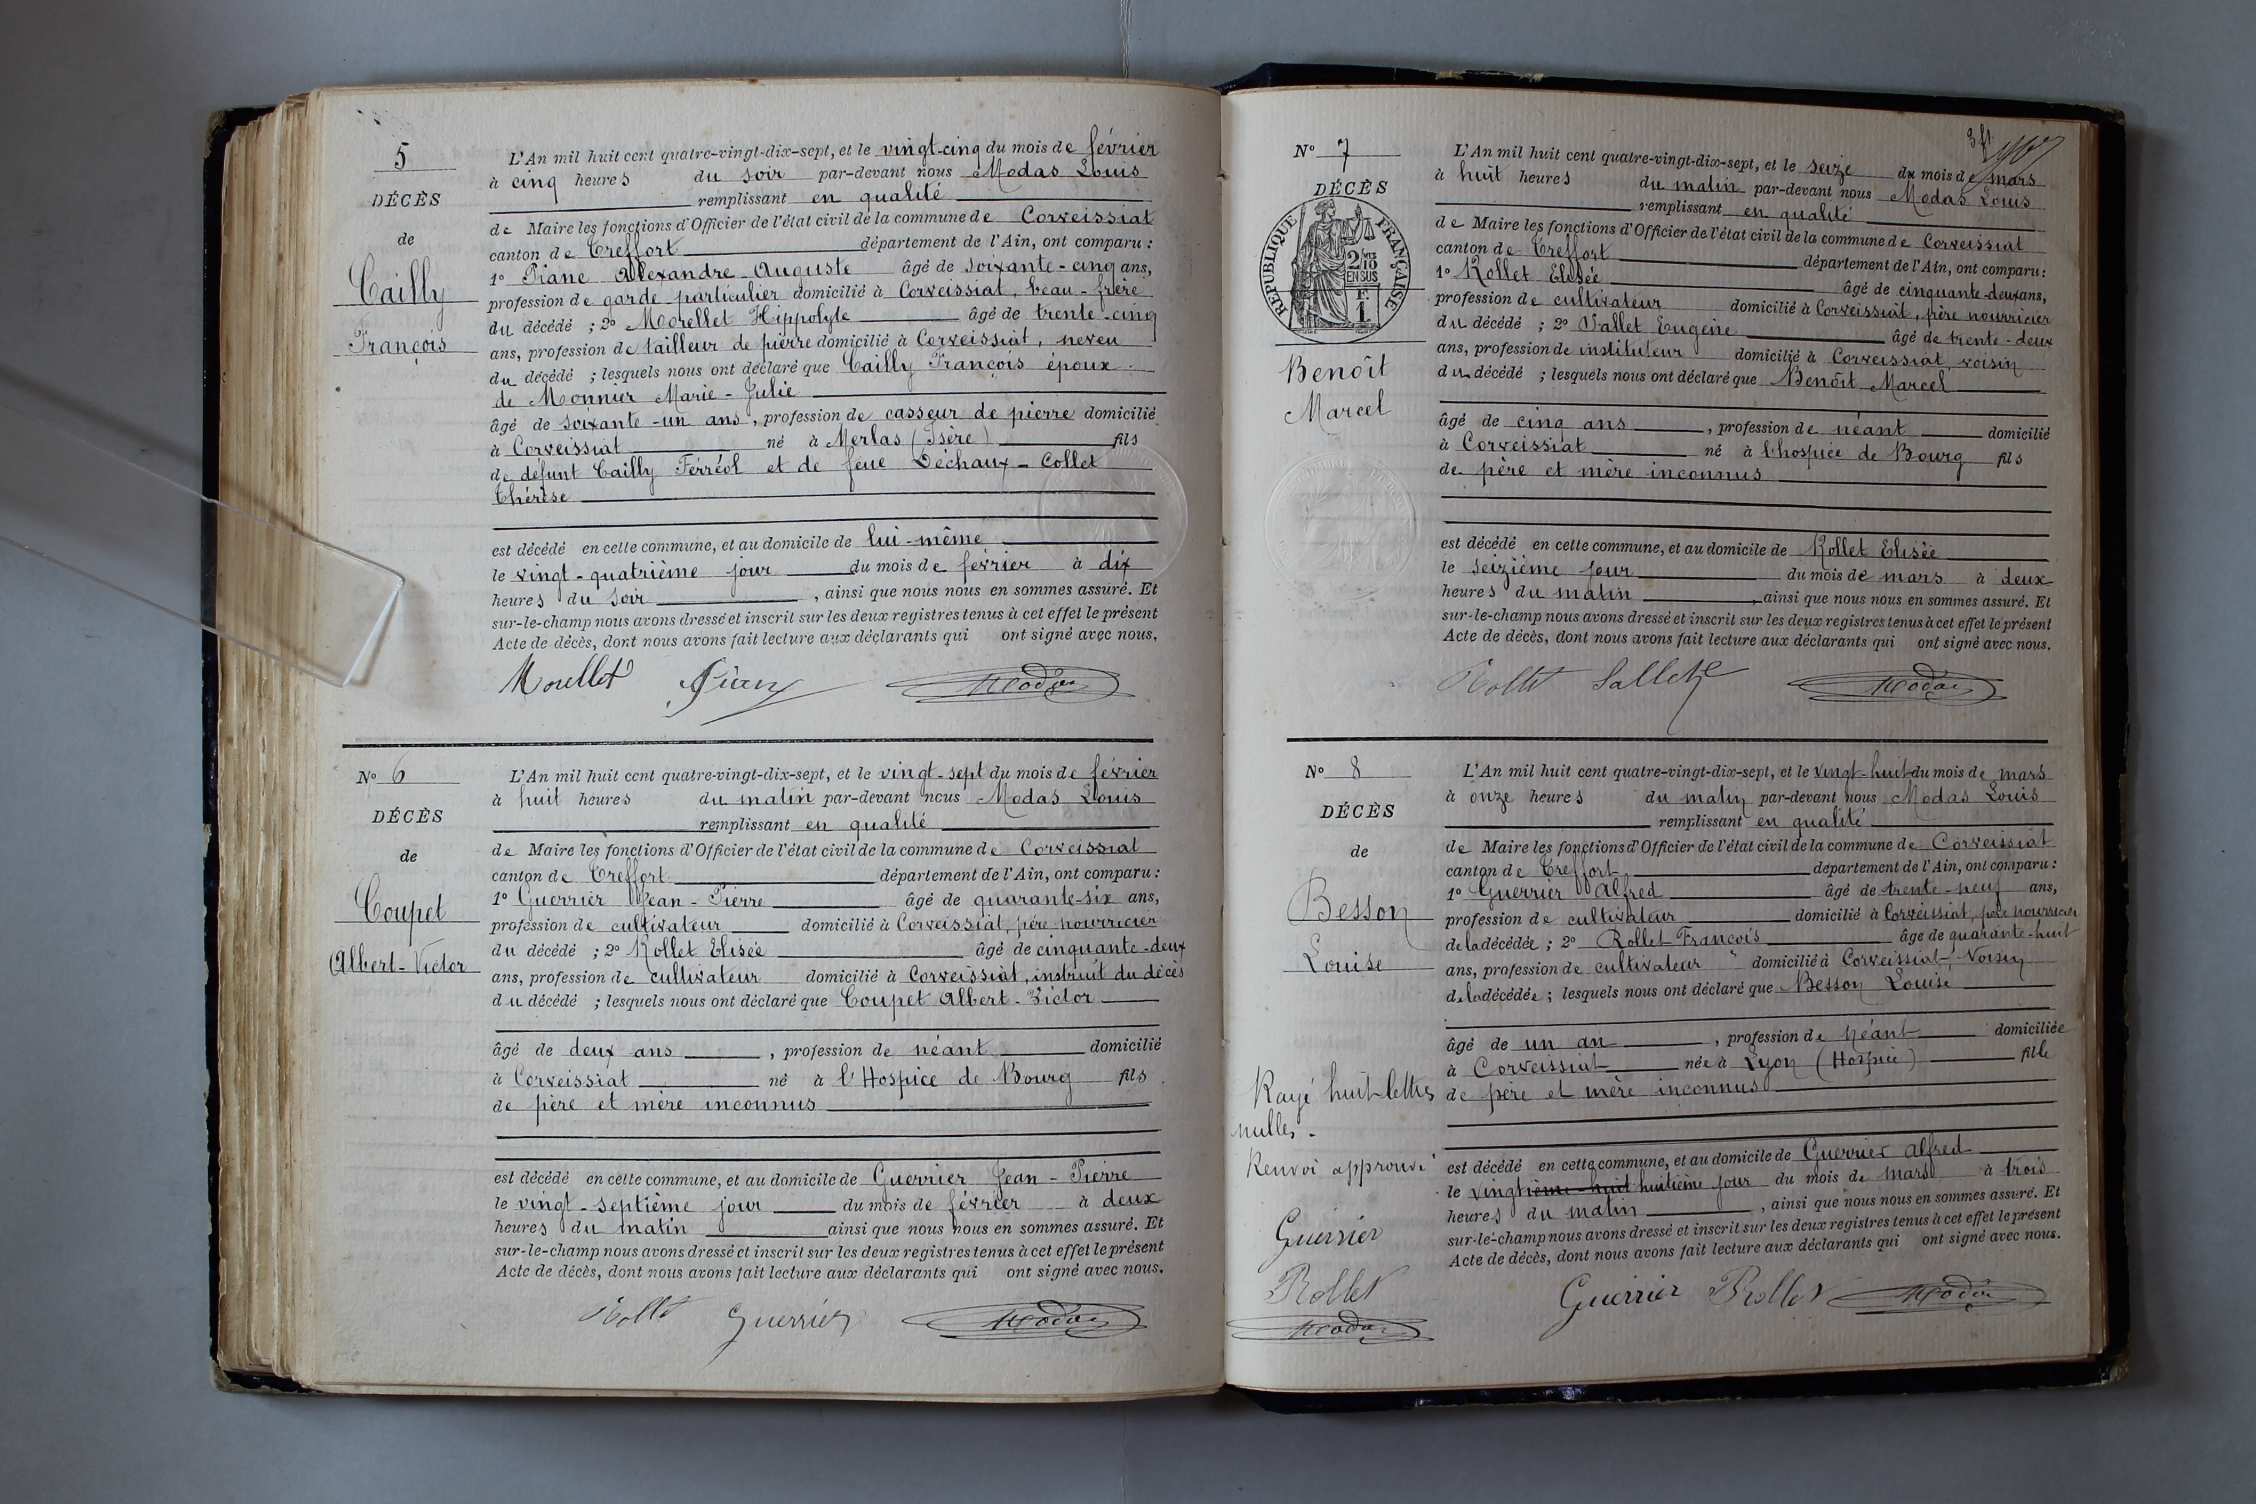 5
DÉCÈS
de
Cailly
François
L'An mil huit cent quatre-vingt-dix-sept, et le vingt-cinq du mois de février
à cinq heures du soir par-devant nous Modas Louis
remplissant en qualité
de Maire les fonctions d'Officier de l'état civil de la commune de Corveissiat
canton de Treffort département de l'Ain, ont comparu :
1° Piane Alexandre Auguste âgé de soixante-cinq ans,
profession de garde particulier domicilié à Corveissiat, beau-frère
du décédé ; 2° Morellet Hippolyte âgé de trente-cinq
ans, profession de tailleur de pierre domicilié à Corveissiat, neveu
du décédé ; lesquels nous ont déclaré que Cailly François époux
de Monnier Marie-Julie
âgé de soixante-un ans, profession de casseur de pierre domicilié
à Corveissiat né à Merlas (Isère) fils
de défunt Cailly Ferréol et de feue Déchaux-Collet
Thérèse
est décédé en cette commune, et au domicile de lui-même
le vingt-quatrième jour du mois de février à dix
heures du soir, ainsi que nous nous en sommes assuré. Et
sur-le-champ nous avons dressé et inscrit sur les deux registres tenus à cet effet le présent
Acte de décès, dont nous avons fait lecture aux déclarants qui ont signé avec nous.
Morellet Modas
N° 6
DÉCÈS
de
Coupet
Albert-Victor
L'An mil huit cent quatre-vingt-dix-sept, et le vingt-sept du mois de février
à huit heures du matin par-devant nous Modas Louis
remplissant en qualité
de Maire les fonctions d'Officier de l'état civil de la commune de Corveissiat
canton de Treffort département de l'Ain, ont comparu :
1° Guerrier Jean-Pierre âgé de quarante-six ans,
profession de cultivateur domicilié à Corveissiat, père nourricier
du décédé ; 2° Rollet Elisée âgé de cinquante-deux
ans, profession de cultivateur domicilié à Corveissiat, instruit du décès
du décédé ; lesquels nous ont déclaré que Coupet Albert-Victor
âgé de deux ans, profession de néant domicilié
à Corveissiat né à l'Hospice de Bourg fils
de père et mère inconnus
est décédé en cette commune, et au domicile de Guerrier Jean-Pierre
le vingt-septième jour du mois de février à deux
heures du matin ainsi que nous nous en sommes assuré. Et
sur-le-champ nous avons dressé et inscrit sur les deux registres tenus à cet effet le présent
Acte de décès, dont nous avons fait lecture aux déclarants qui ont signé avec nous.
Rollet Guerrier Modas
N° 7
DÉCÈS
RÉPUBLIQUE FRANÇAISE
2/10
EN SUS
F.
1
Benoît
Marcel
L'An mil huit cent quatre-vingt-dix-sept, et le seize du mois de mars
à huit heures du matin par-devant nous Modas Louis
remplissant en qualité
de Maire les fonctions d'Officier de l'état civil de la commune de Corveissiat
canton de Treffort département de l'Ain, ont comparu :
1° Rollet Elisée âgé de cinquante-deux ans,
profession de cultivateur domicilié à Corveissiat, père nourricier
du décédé ; 2° Vallet Eugène âgé de trente-deux
ans, profession de instituteur domicilié à Corveissiat, voisin
du décédé ; lesquels nous ont déclaré que Benoît Marcel
âgé de cinq ans, profession de néant domicilié
à Corveissiat né à l'hospice de Bourg fils
de père et mère inconnus
est décédé en cette commune, et au domicile de Rollet Elisée
le seizième jour du mois de mars à deux
heures du matin, ainsi que nous nous en sommes assuré. Et
sur-le-champ nous avons dressé et inscrit sur les deux registres tenus à cet effet le présent
Acte de décès, dont nous avons fait lecture aux déclarants qui ont signé avec nous.
Rollet Modas
N° 8
DÉCÈS
de
Besson
Louise
L'An mil huit cent quatre-vingt-dix-sept, et le vingt-huit du mois de mars
à onze heures du matin par-devant nous Modas Louis
remplissant en qualité
de Maire les fonctions d'Officier de l'état civil de la commune de Corveissiat
canton de Treffort département de l'Ain, ont comparu :
1° Guerrier Alfred âgé de trente-neuf ans,
profession de cultivateur domicilié à Corveissiat, père nourricier
de la décédée ; 2° Rollet François âgé de quarante-huit
ans, profession de cultivateur domicilié à Corveissiat, voisin
de la décédée ; lesquels nous ont déclaré que Besson Louise
âgé de un an, profession de néant domiciliée
à Corveissiat née à Lyon (Hospice) fille
de père et mère inconnus
est décédé en cette commune, et au domicile de Guerrier Alfred
le vingtième-huit huitième jour du mois de mars à trois
heures du matin, ainsi que nous nous en sommes assuré. Et
sur-le-champ nous avons dressé et inscrit sur les deux registres tenus à cet effet le présent
Acte de décès, dont nous avons fait lecture aux déclarants qui ont signé avec nous.
Guerrier Rollet Modas
Rayé huit lettres
nulles.
Renvoi approuvé
Guerrier
Rollet
Modas